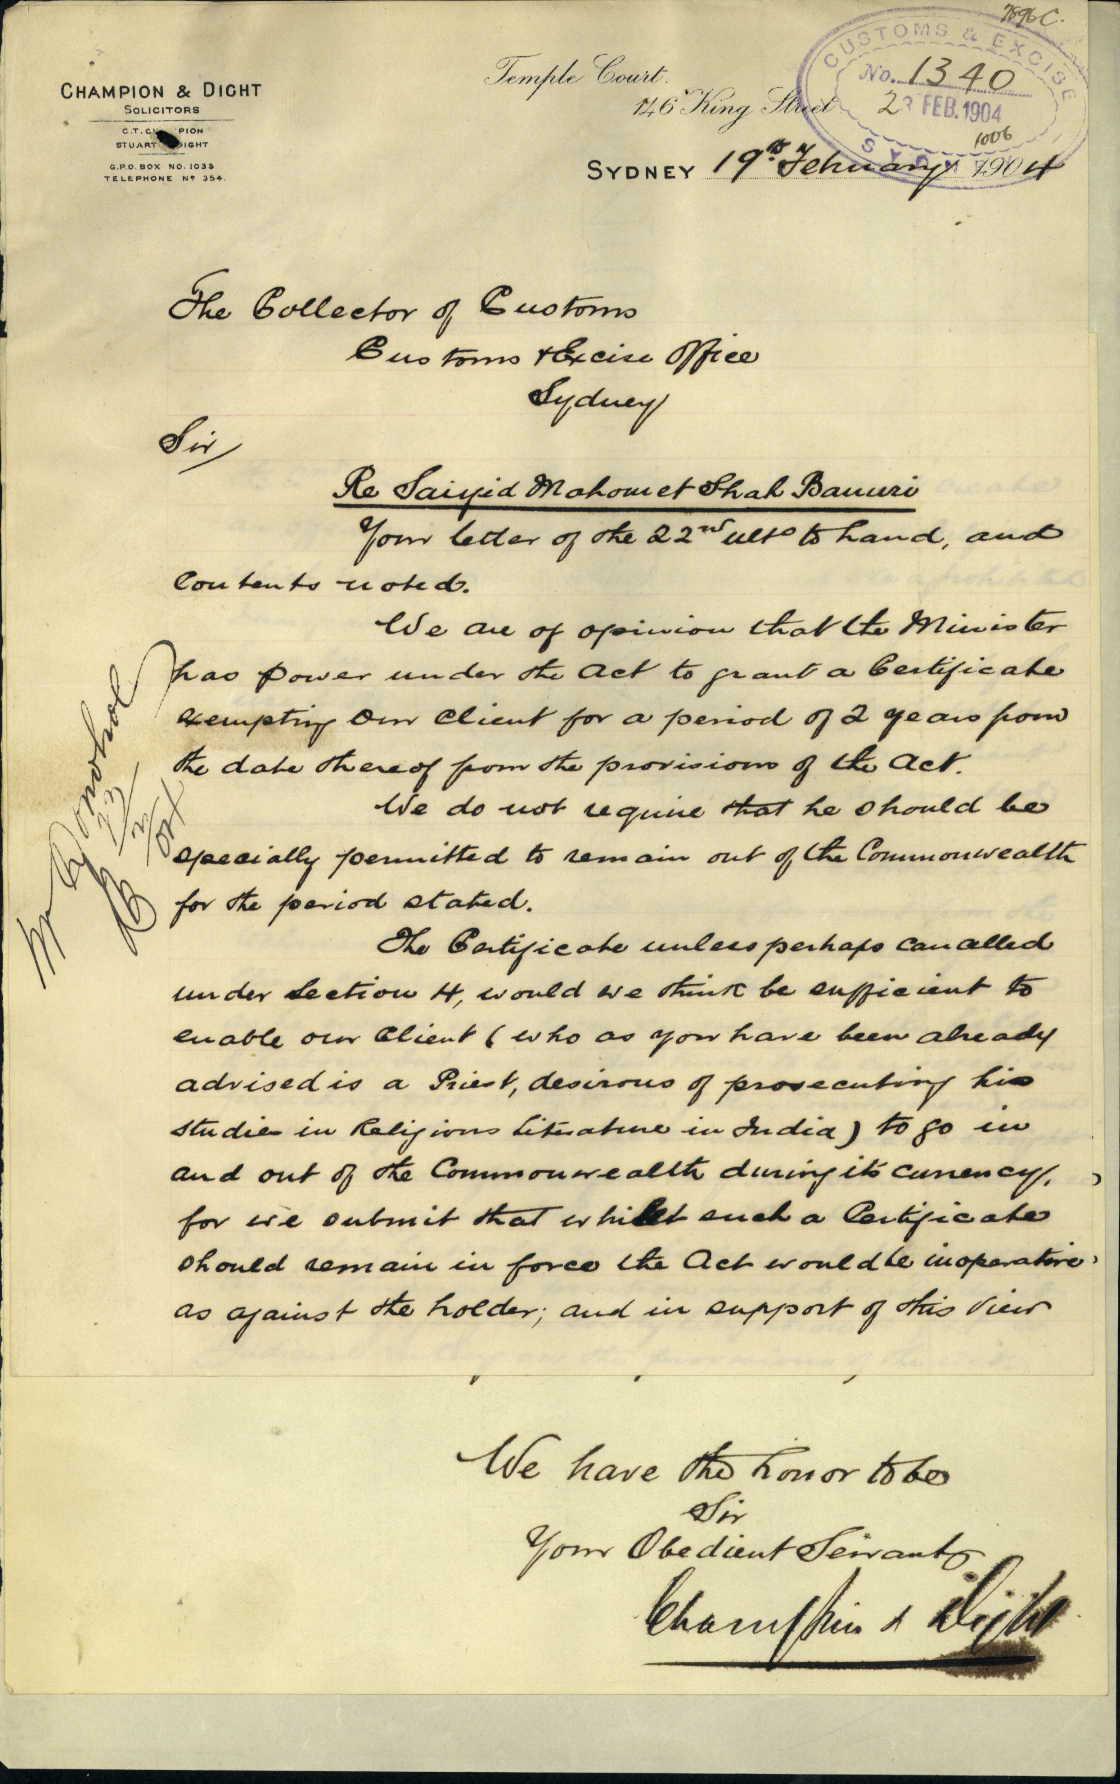 7896 C.
CHAMPION & DIGHT
SOLICITORS
C.T. CHAMPION
STUART DIGHT
G.P.O. BOX NO. 1033
TELEPHONE Nº 354.
Temple Court.
146 King Street
SYDNEY 19th February 1904
CUSTOMS & EXCISE
No. 1340
23 FEB. 1904
1006
SYDNEY
The Collector of Customs
Customs & Excise Office
Sydney
Sir/
Re Saiyid Mahomet Shah Banuri
Your letter of the 22nd ulto to hand, and
contents noted.
We are of opinion that the Minister
has power under the Act to grant a Certificate
exempting our client for a period of 2 years from
the date thereof from the provisions of the Act.
We do not require that he should be
specially permitted to remain out of the Commonwealth
for the period stated.
The Certificate unless perhaps cancelled
under Section 4, would we think be sufficient to
enable our Client (who as you have been already
advised is a Priest, desirous of prosecuting his
studies in Religious Literature in India) to go in
and out of the Commonwealth during its currency,
for we submit that whilst such a Certificate
should remain in force the Act would be inoperative
as against the holder; and in support of this view
We have the honor to be
Sir
Your Obedient Servants
Champion & Dight
Mr Donohoe
23/2/04